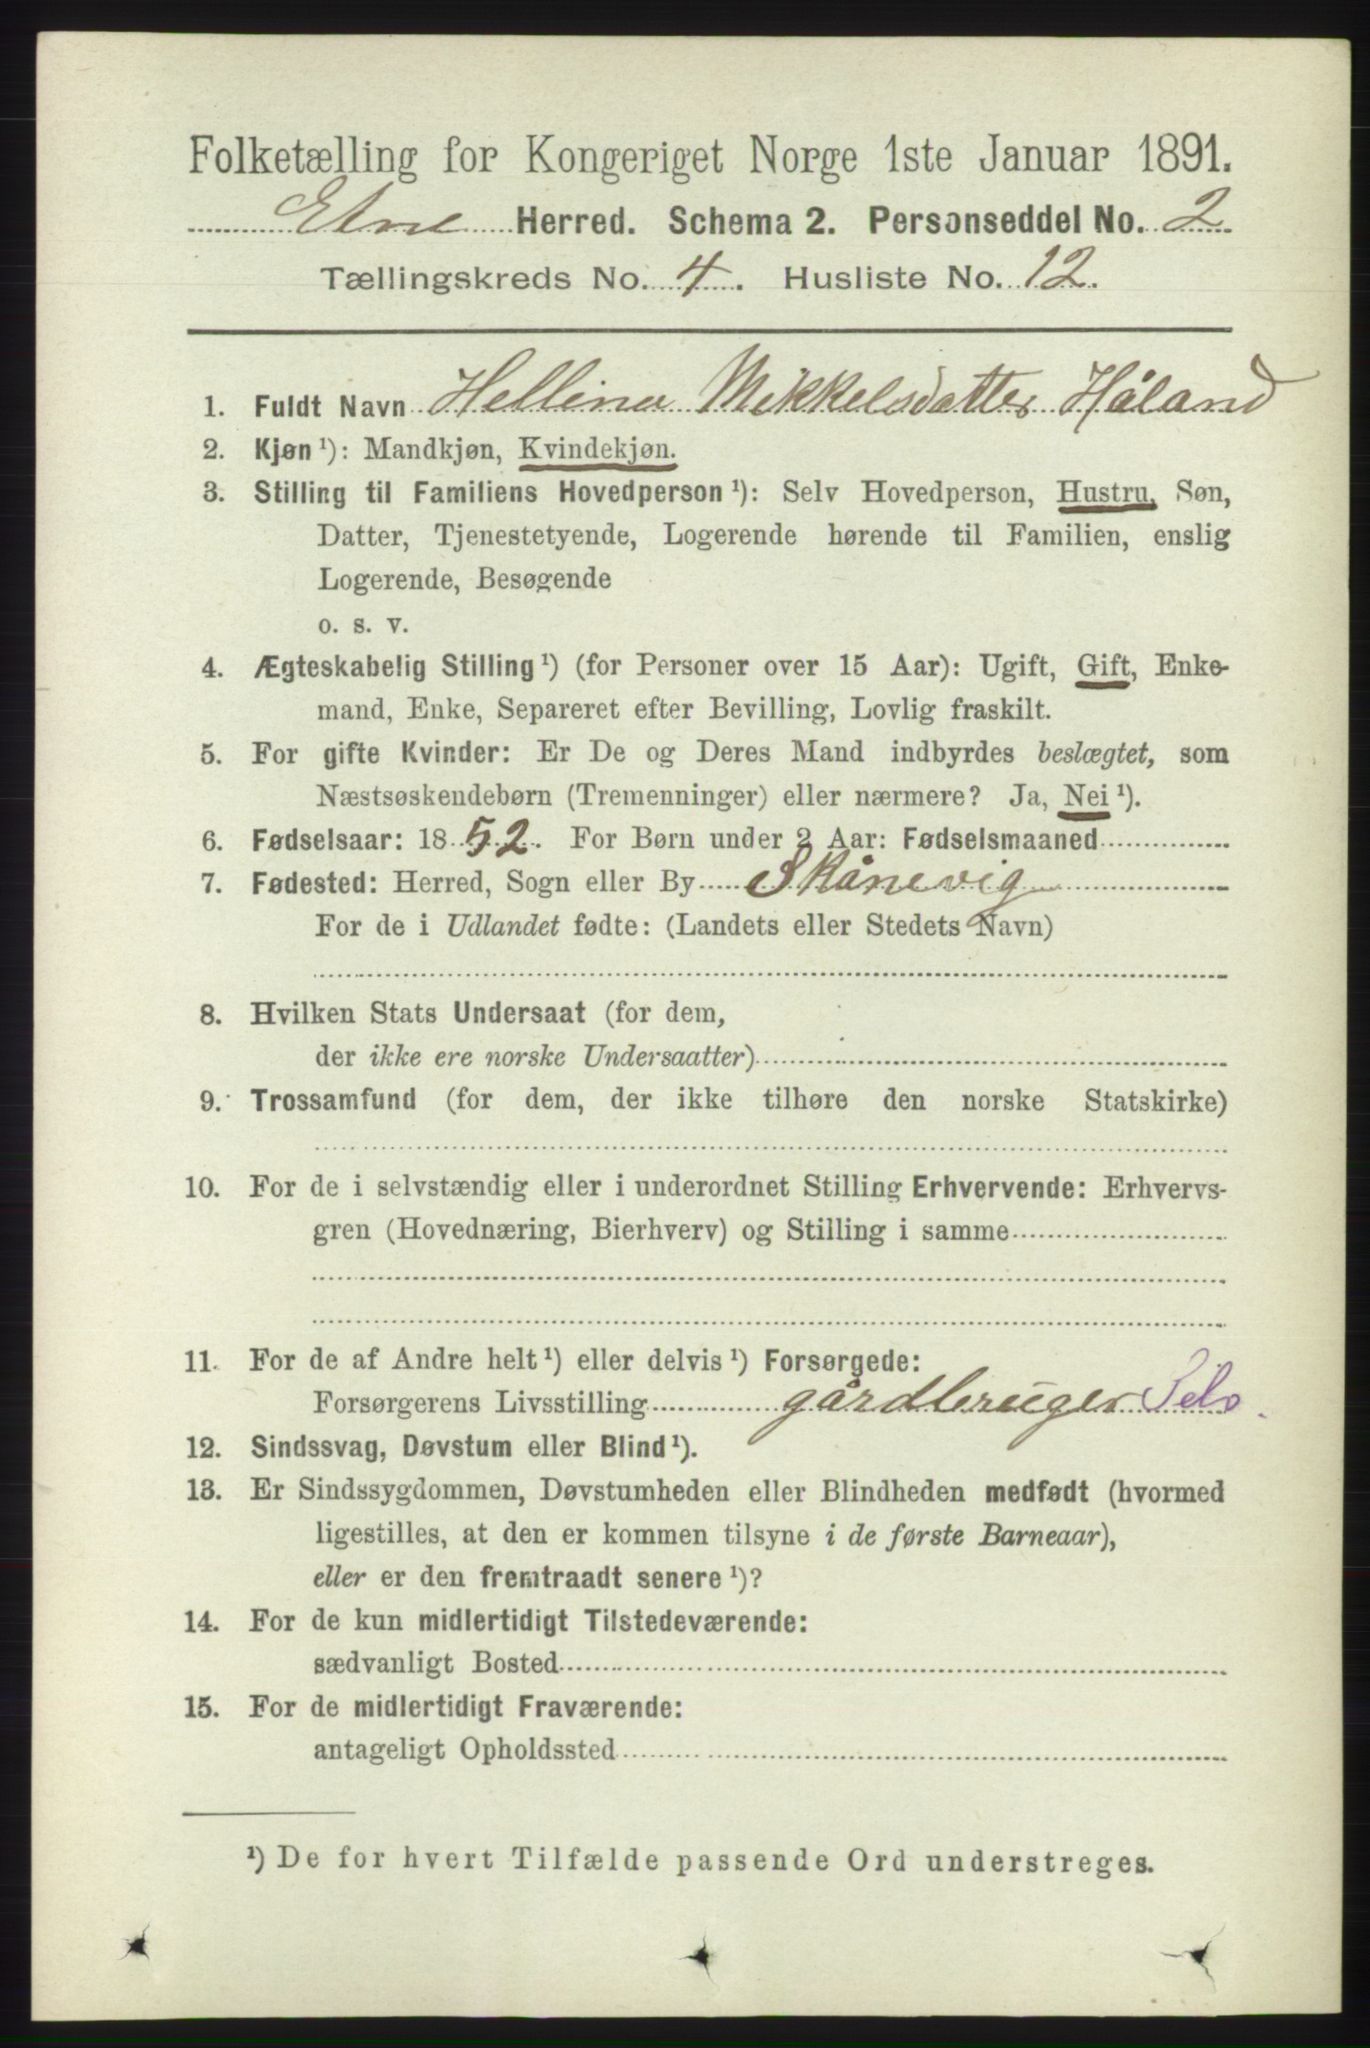 Folketælling for Kongeriget Norge 1ste Januar 1891.
Etne Herred. Schema 2. Personseddel No. 2
Tællingskreds No. 4. Husliste No. 12.
1. Fuldt Navn Hellina Mikkelsdatter Håland
2. Kjøn ¹): Mandkjøn, Kvindekjøn.
3. Stilling til Familiens Hovedperson ¹): Selv Hovedperson, Hustru, Søn,
Datter, Tjenestetyende, Logerende hørende til Familien, enslig
Logerende, Besøgende
o. s. v.
4. Ægteskabelig Stilling ¹) (for Personer over 15 Aar): Ugift, Gift, Enke-
mand, Enke, Separeret efter Bevilling, Lovlig fraskilt.
5. For gifte Kvinder: Er De og Deres Mand indbyrdes beslægtet, som
Næstsøskendebørn (Tremenninger) eller nærmere? Ja, Nei ¹).
6. Fødselsaar: 1852. For Børn under 2 Aar: Fødselsmaaned
7. Fødested: Herred, Sogn eller By Skånevig
For de i Udlandet fødte: (Landets eller Stedets Navn)
8. Hvilken Stats Undersaat (for dem,
der ikke ere norske Undersaatter)
9. Trossamfund (for dem, der ikke tilhøre den norske Statskirke)
10. For de i selvstændig eller i underordnet Stilling Erhvervende: Erhvervs-
gren (Hovednæring, Bierhverv) og Stilling i samme
11. For de af Andre helt ¹) eller delvis ¹) Forsørgede:
Forsørgerens Livsstilling gårdbruger Selv
12. Sindssvag, Døvstum eller Blind ¹).
13. Er Sindssygdommen, Døvstumheden eller Blindheden medfødt (hvormed
ligestilles, at den er kommen tilsyne i de første Barneaar),
eller er den fremtraadt senere ¹)?
14. For de kun midlertidigt Tilstedeværende:
sædvanligt Bosted
15. For de midlertidigt Fraværende:
antageligt Opholdssted
¹) De for hvert Tilfælde passende Ord understreges.